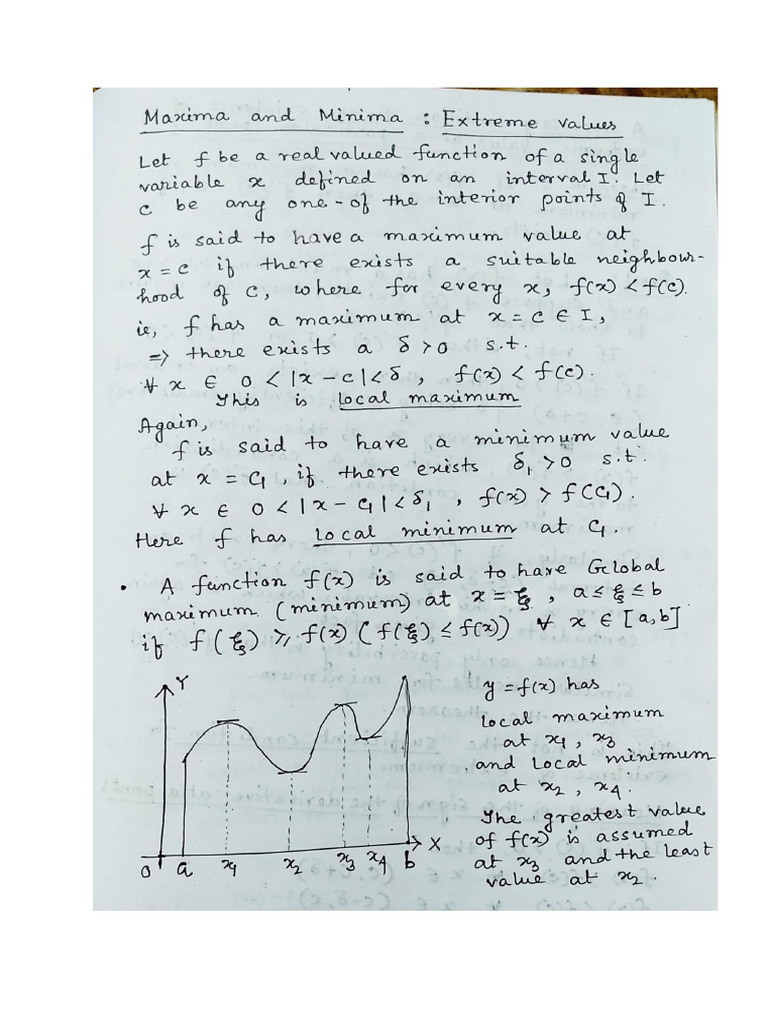 Maxima and Minima : Extreme values
Let f be a real valued function of a single
variable x defined on an interval I. Let
c be any one-of the interior points of I.
f is said to have a maximum value at
x = c if there exists a suitable neighbour-
hood of c, where for every x, f(x) < f(c).
ie, f has a maximum at x = c ∈ I,
⇒ there exists a δ > 0 s.t.
∀ x ∈ 0 < |x - c| < δ , f(x) < f(c).
This is local maximum
Again,
f is said to have a minimum value
at x = c₁, if there exists δ₁ > 0 s.t.
∀ x ∈ 0 < |x - c₁| < δ₁ , f(x) > f(c₁).
Here f has local minimum at c₁.
• A function f(x) is said to have Global
maximum (minimum) at x = ξ , a ≤ ξ ≤ b
if f(ξ) ≥ f(x) (f(ξ) ≤ f(x)) ∀ x ∈ [a, b]
Y
X
0 a x₁ x₂ x₃ x₄ b
y = f(x) has
local maximum
at x₁ , x₃
and local minimum
at x₂ , x₄.
The greatest value
of f(x) is assumed
at x₃ and the least
value at x₂.